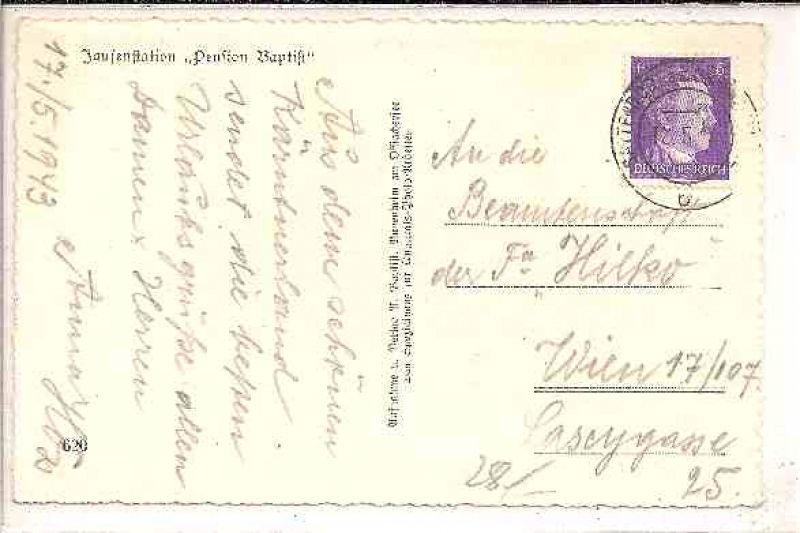 Jausenstation „Pension Baptist"
17./5. 1943
Aus dem schönen
Kärntnerland
sendet die besten
Urlaubsgrüße allen
Damen u. Herren
Anna
620
Aufnahme u. Verlag A. Baptist, am Ossiachersee
DEUTSCHES REICH
6
An die
Beamtenschaft
der Fa. Hilko
Wien 17/107.
Lascygasse
25.
28/-